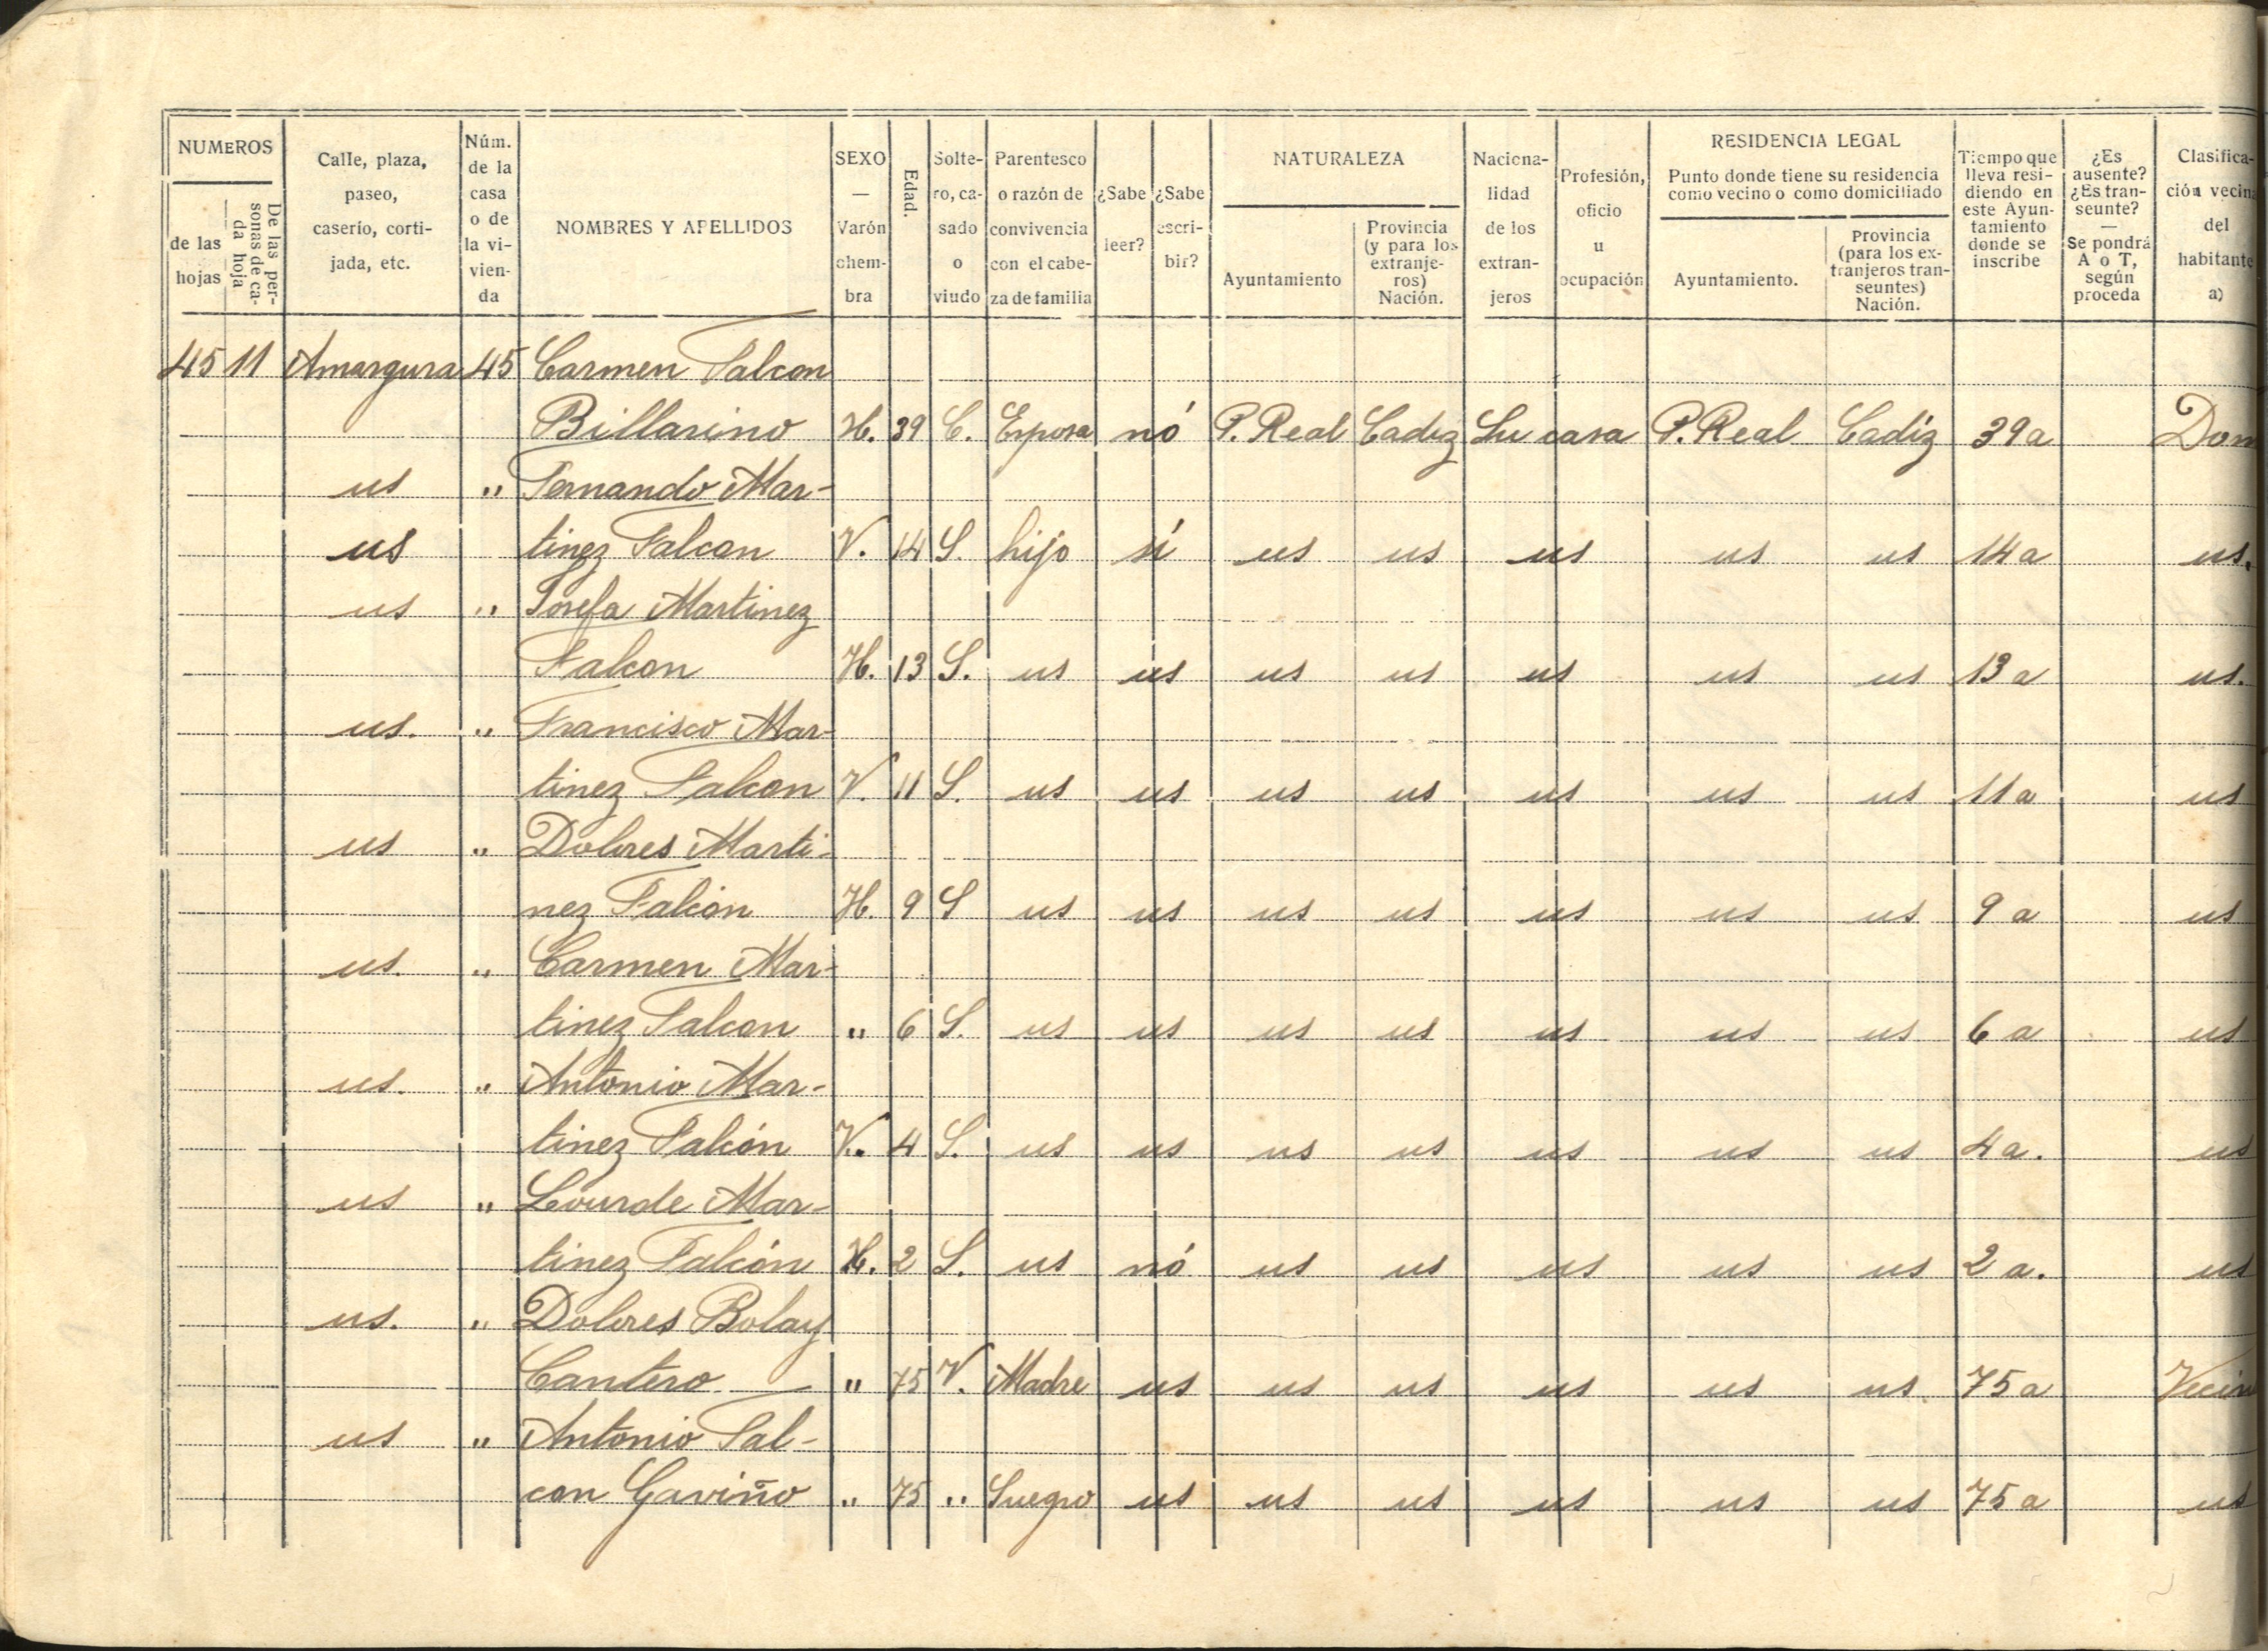 NUMEROS
de las hojas
De las personas de cada hoja
Calle, plaza, paseo, caserío, cortijada, etc.
Núm. de la casa o de la vivienda
NOMBRES Y APELLIDOS
SEXO — Varón o hembra
Edad.
Soltero, casado o viudo
Parentesco o razón de convivencia con el cabeza de familia
¿Sabe leer?
¿Sabe escribir?
NATURALEZA
Ayuntamiento
Provincia (y para los extranjeros) Nación.
Nacionalidad de los extranjeros
Profesión, oficio u ocupación
RESIDENCIA LEGAL
Punto donde tiene su residencia como vecino o como domiciliado
Ayuntamiento.
Provincia (para los extranjeros transeuntes) Nación.
Tiempo que lleva residiendo en este Ayuntamiento donde se inscribe
¿Es ausente? ¿Es transeunte? — Se pondrá A o T, según proceda
Clasificación vecin del habitante a)
45 11 Amargura 45 Carmen Falcon
Billarino H. 39 C. Esposa nó P. Real Cadiz Su casa P. Real Cadiz 39 a Dom
us " Fernando Mar-
us tinez Falcon V. 14 S. hijo sí us us us us us 14 a us.
us " Josefa Martinez
Falcon H. 13 S. us us us us us us us 13 a us.
us. " Francisco Mar-
tinez Falcon V. 11 S. us us us us us us us 11 a us
us " Dolores Marti-
nez Falcón H. 9 S us us us us us us us 9 a us
us. " Carmen Mar-
tinez Falcon " 6 S. us us us us us us us 6 a us
us. " Antonio Mar-
tinez Falcón V. 4 S. us us us us us us us 4 a. us
us " Lourde Mar-
tinez Falcón H. 2 S. us nó us us us us us 2 a. us
us. " Dolores Bolay
Cantero " 75 V. Madre us us us us us us 75 a Vecin
us " Antonio Fal-
con Gaviño " 75 " Suegro us us us us us us 75 a us